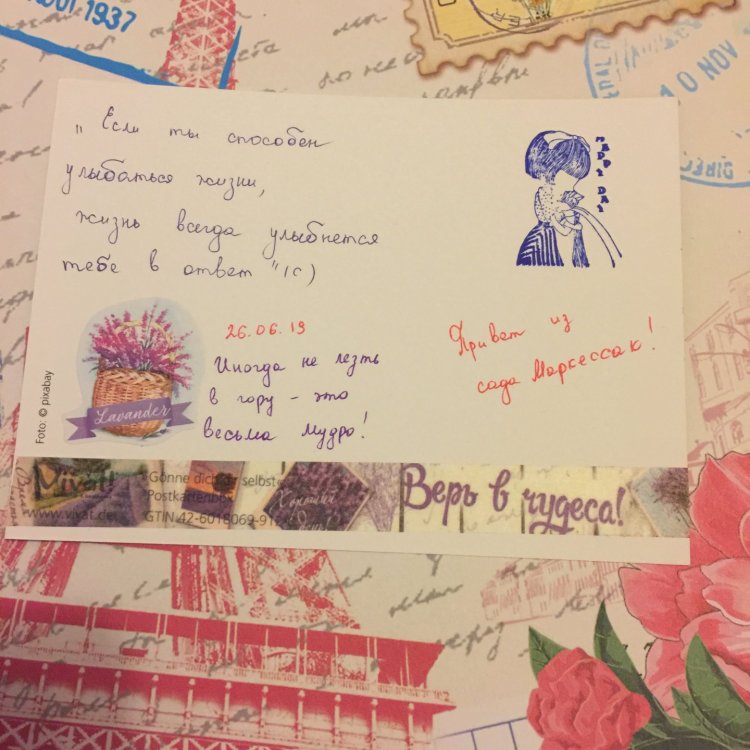 "Если ты способен
улыбаться жизни,
жизнь всегда улыбнется
тебе в ответ" (с)
HAPPY DAY
26.06.19
Иногда не лезть
в гору – это
весьма мудро!
Привет из
сада Маркессак!
Lavander
Foto: © pixabay
Vivat!
www.vivat.de
Gönne dich dir selbst
Postkartenbuch
GTIN 42-6018069-91
Хороший
Верь в чудеса!
1937
10 NOV
DIREC